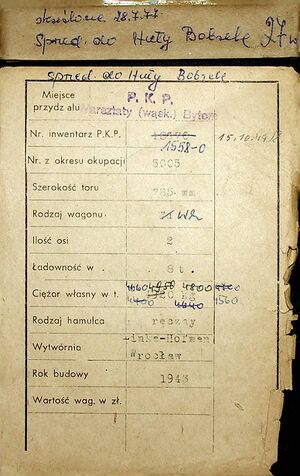 skreślono 28.7.77
Sprzed. do Huty Bobrek 27 w
Sprzed. do Huty Bobrek
Miejsce przydziału P. K. P.
Warsztaty (wąsk.) Bytom
Nr. inwentarz P.K.P.
1558-0
Nr. z okresu okupacji 5005
Szerokość toru 785 mm
Rodzaj wagonu Wh
Ilość osi 2
Ładowność w . 8 t.
4660 4950 4800
Ciężar własny w t. kg
4640 4560
Rodzaj hamulca ręczny
Wytwórnia Linke-Hofman
Wrocław
Rok budowy 1943
Wartość wag. w zł.